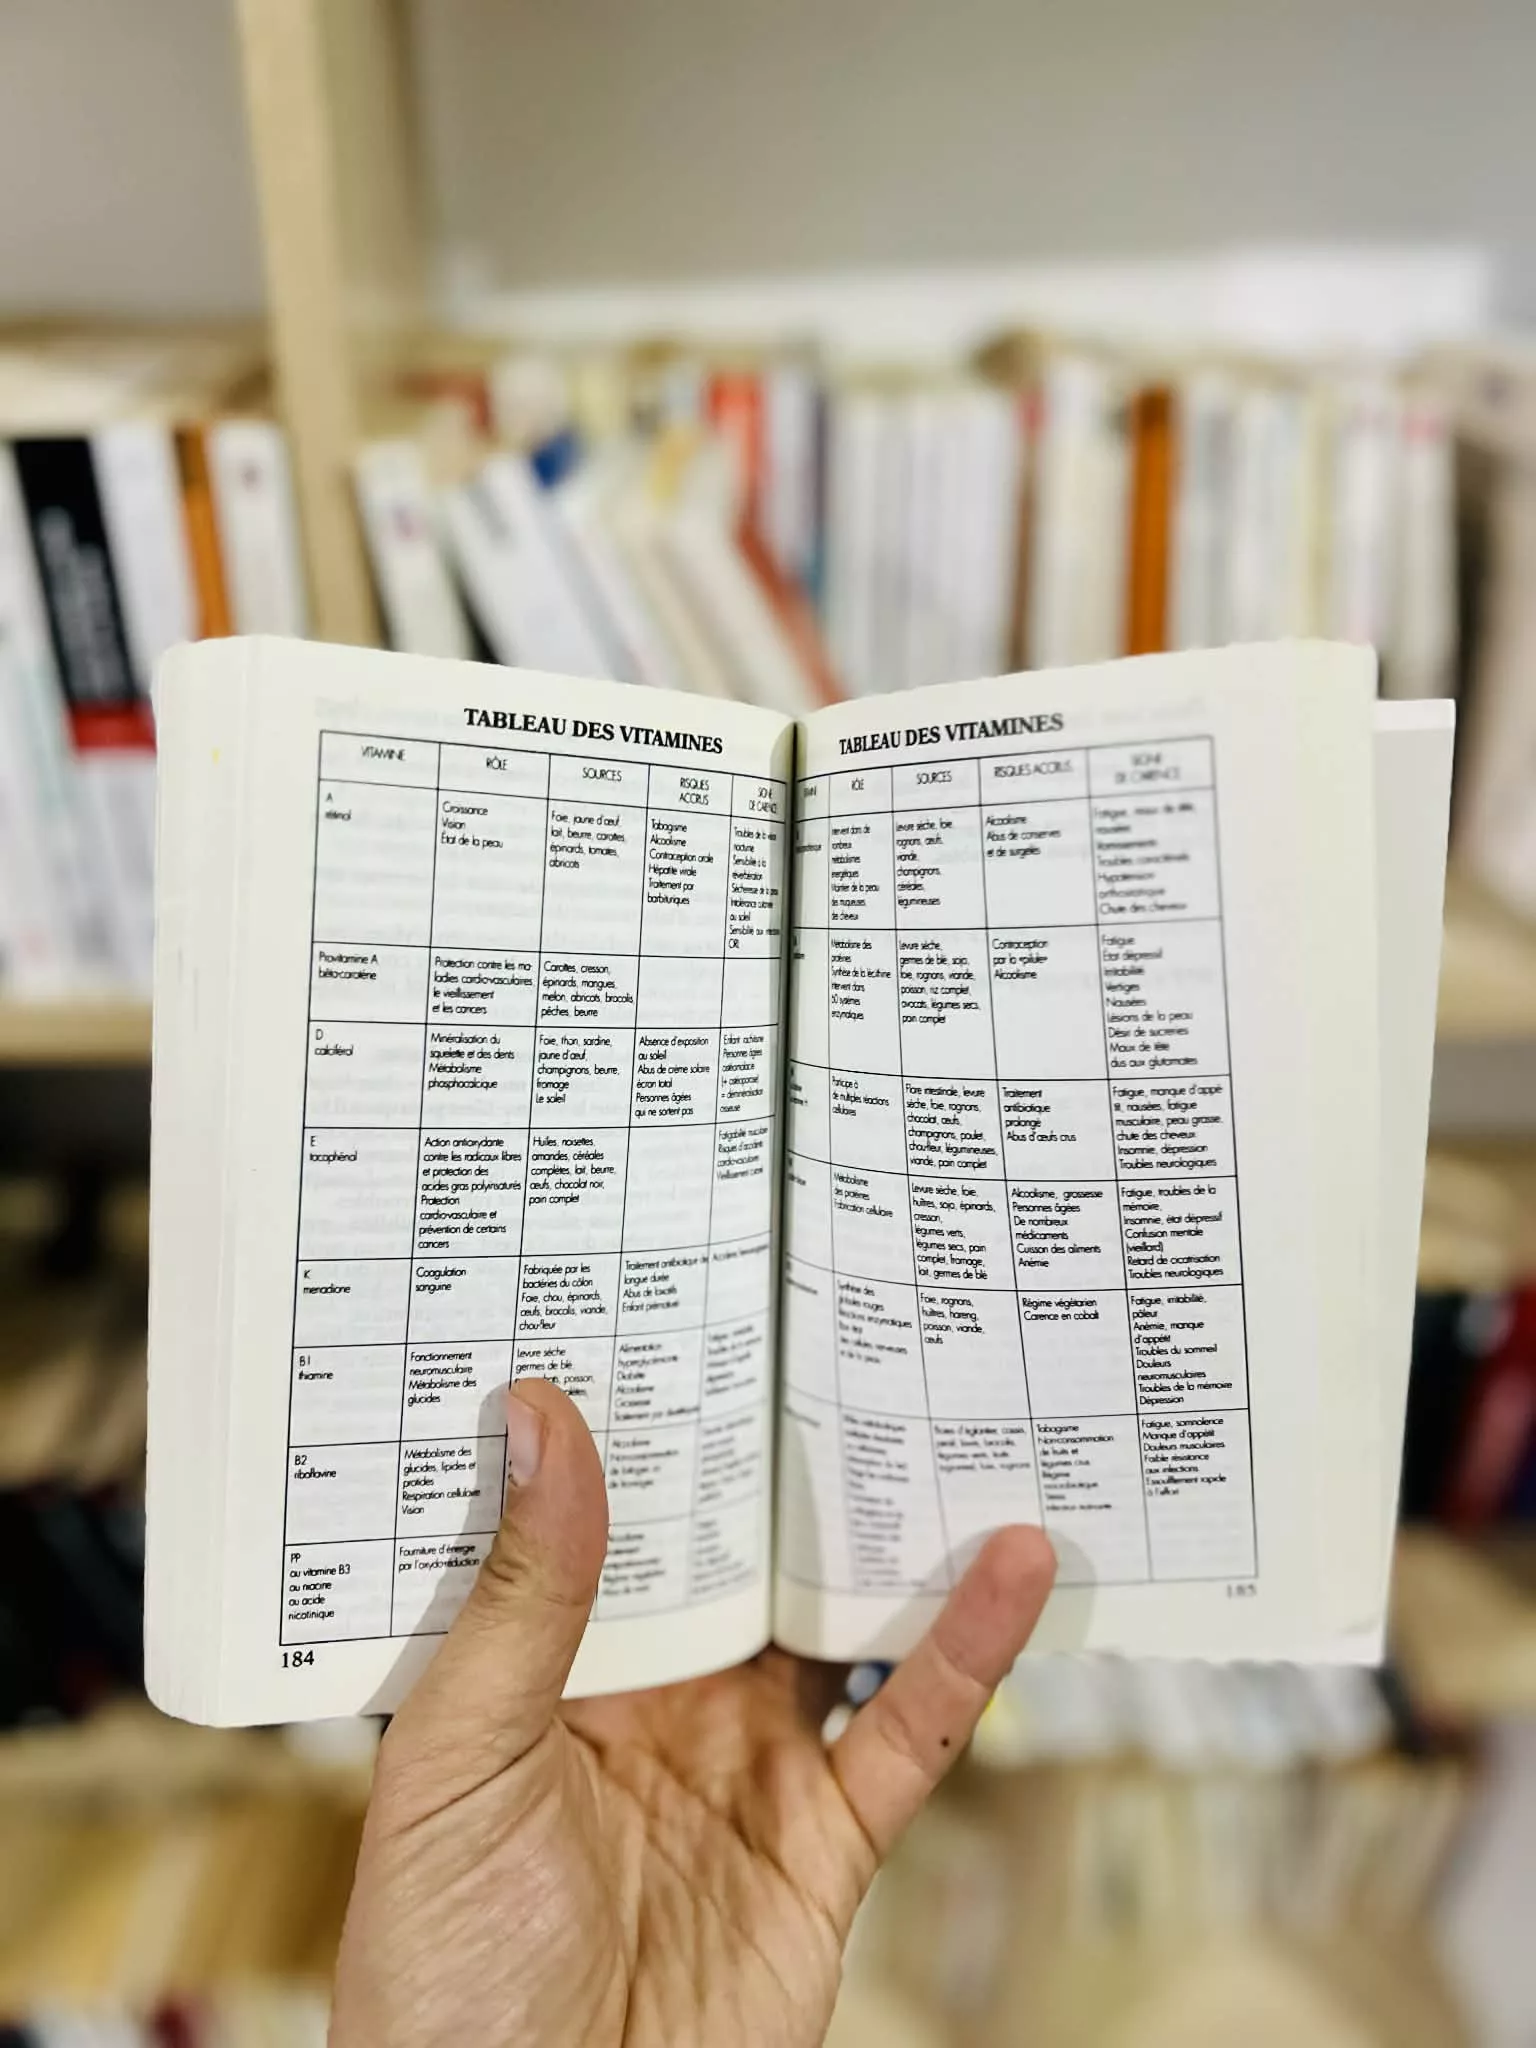 TABLEAU DES VITAMINES
VITAMINE
RÔLE
SOURCES
RISQUES
ACCRUS
SIGNE
DE CARENCE
A
rétinol
Croissance
Vision
État de la peau
Foie, jaune d'œuf,
lait, beurre, carottes,
épinards, tomates,
abricots
Tabagisme
Alcoolisme
Contraception orale
Hépatite virale
Traitement par
barbituriques
Troubles de la vision
nocturne
Sensibilité à la
réverbération
Sécheresse de la peau
Intolérance cutanée
au soleil
Sensibilité aux infections
ORL
Provitamine A
bêta-carotène
Protection contre les ma-
ladies cardio-vasculaires,
le vieillissement
et les cancers
Carottes, cresson,
épinards, mangues,
melon, abricots, brocolis
pêches, beurre
D
calciférol
Minéralisation du
squelette et des dents
Métabolisme
phosphocalcique
Foie, thon, sardine,
jaune d'œuf,
champignons, beurre,
fromage
Le soleil
Absence d'exposition
au soleil
Abus de crème solaire
écran total
Personnes âgées
qui ne sortent pas
Enfant rachisme
Personnes âgées
ostéomalacie
(+ ostéoporose)
= déminéralisation
osseuse
E
tocophénol
Action antioxydante
contre les radicaux libres
et protection des
acides gras polyinsaturés
Protection
cardio-vasculaire et
prévention de certains
cancers
Huiles, noisettes,
amandes, céréales
complètes, lait, beurre,
œufs, chocolat noir,
pain complet
Fatigabilité musculaire
Risques d'accidents
cardio-vasculaires
Vieillissement
K
menadione
Coagulation
sanguine
Fabriquée par les
bactéries du côlon
Foie, chou, épinards,
œufs, brocolis, viande,
chou-fleur
Traitement antibiotique de
longue durée
Abus de laxatifs
Enfant prématuré
B1
thiamine
Fonctionnement
neuromusculaire
Métabolisme des
glucides
Levure sèche
germes de blé,
poisson,
Alimentation
hyperglycémiante
Diabète
Alcoolisme
Grossesse
Traitement par diurétiques
B2
riboflavine
Métabolisme des
glucides, lipides et
protides
Respiration cellulaire
Vision
Alcoolisme
PP
ou vitamine B3
ou niacine
ou acide
nicotinique
Fourniture d'énergie
par l'oxydo-réduction
184
TABLEAU DES VITAMINES
RÔLE
SOURCES
RISQUES ACCRUS
SIGNE
DE CARENCE
Intervient dans de
nombreux
métabolismes
énergétiques
Maintien de la peau
des muqueuses
de cheveux
Levure sèche, foie,
rognons, œufs,
viande,
champignons,
céréales,
légumineuses
Alcoolisme
Abus de conserves
et de surgelés
Fatigue, maux de tête,
nausées
Vomissements
Troubles caractériels
Hypotension
orthostatique
Chute des cheveux
Métabolisme des
protéines
Synthèse de la lécithine
Intervient dans
60 systèmes
enzymatiques
Levure sèche,
germes de blé, soja,
foie, rognons, viande,
poisson, riz complet,
avocats, légumes secs,
pain complet
Contraception
par la «pilule»
Alcoolisme
Fatigue
État dépressif
Irritabilité
Vertiges
Nausées
Lésions de la peau
Désir de sucreries
Maux de tête
dus aux glutamates
Participe à
de multiples réactions
cellulaires
Flore intestinale, levure
sèche, foie, rognons,
chocolat, œufs,
champignons, poulet,
chou-fleur, légumineuses,
viande, pain complet
Traitement
antibiotique
prolongé
Abus d'œufs crus
Fatigue, manque d'appé-
tit, nausées, fatigue
musculaire, peau grasse,
chute des cheveux
Insomnie, dépression
Troubles neurologiques
Métabolisme
des protéines
Fabrication cellulaire
Levure sèche, foie,
huîtres, soja, épinards,
cresson,
légumes verts,
légumes secs, pain
complet, fromage,
lait, germes de blé
Alcoolisme, grossesse
Personnes âgées
De nombreux
médicaments
Cuisson des aliments
Anémie
Fatigue, troubles de la
mémoire,
Insomnie, état dépressif
Confusion mentale
(vieillard)
Retard de cicatrisation
Troubles neurologiques
Synthèse des
globules rouges
Réactions enzymatiques
Bon état
des cellules nerveuses
et de la peau
Foie, rognons,
huîtres, hareng,
poisson, viande,
œufs
Régime végétarien
Carence en cobalt
Fatigue, irritabilité,
pâleur
Anémie, manque
d'appétit
Troubles du sommeil
Douleurs
neuromusculaires
Troubles de la mémoire
Dépression
Tabagisme
Non-consommation
de fruits et
légumes crus
Régime
macrobiotique
Stress
Fatigue, somnolence
Manque d'appétit
Douleurs musculaires
Faible résistance
aux infections
Essoufflement rapide
à l'effort
185